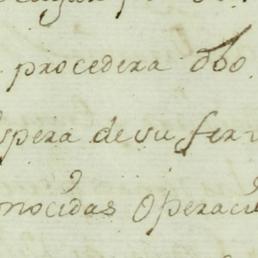 procedera dho
spera de su fer
nocidas Operaci